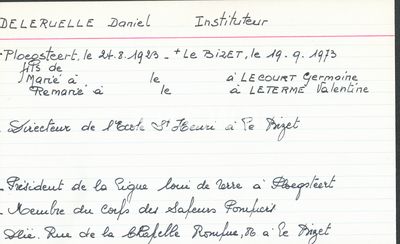 DELERUELLE Daniel Instituteur
Ploegsteert, le 24.8.1923 - + LE BIZET, le 19.9.1973
fils de
Marié à le à LECOURT Germaine
Remarié à le à LETERME Valentine
. Directeur de l'Ecole St Henri à Le Bizet
- Président de la Ligue Louis de Terre à Ploegsteert
- Membre du Corps des Sapeurs Pompiers
. Rue de la Chapelle Rompue, à Le Bizet